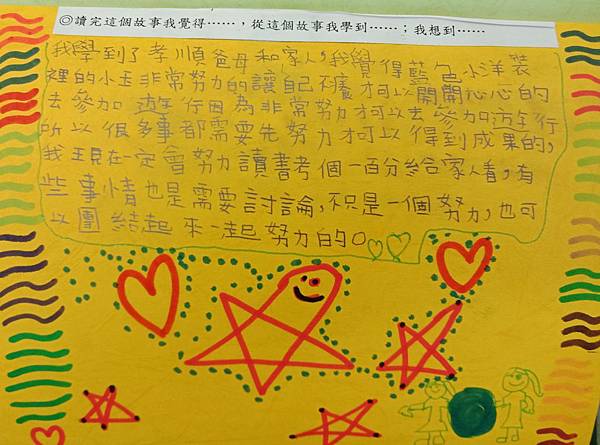 ◎讀完這個故事我覺得……，從這個故事我學到……；我想到……
我學到了孝順爸母和家人，我覺得藍色小洋裝
裡的小玉非常努力的讓自己不癢才可以開開心心的
去參加遊行因為非常努力才可以去參加遊行
所以很多事都需要先努力才可以得到成果的，
我現在一定會努力讀書考個一百分給家人看，有
些事情也是需要討論，不只是一個努力，也可
以團結起來一起努力的。